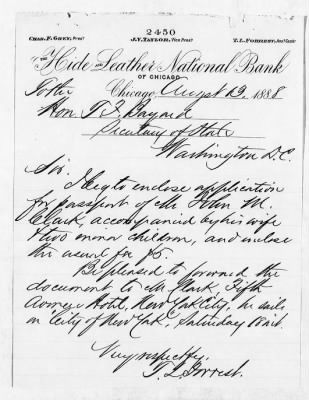 2450
Chas. F. Grey, Prest. J.V. Taylor, Vice Prest. T.L. Forrest, Asst. Cashr.
The Hide and Leather National Bank
OF CHICAGO
To the Chicago, August 13, 1888
Hon T. F. Bayard
Secretary of State
Washington D.C.
Sir.
I beg to enclose application
for passport of Mr John M.
Clark, accompanied by his wife
& two minor children, and enclose
the usual fee $5.
Be pleased to forward the
document to Mr Clark, Fifth
Avenue Hotel, New York City, he sails
on "City of New York," Saturday 18 inst.
Very respectfy,
T. L. Forrest.